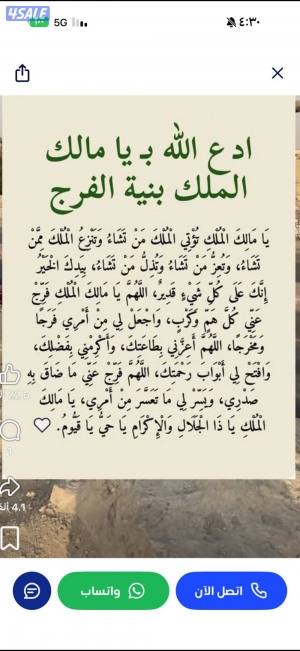 4SALE
5G
٤:٣٠
ادع الله بـ يا مالك
الملك بنية الفرج
يَا مَالِكَ الْمُلْكِ تُؤْتِي الْمُلْكَ مَنْ تَشَاءُ وَتَنْزِعُ الْمُلْكَ مِمَّنْ
تَشَاءُ، وَتُعِزُّ مَنْ تَشَاءُ وَتُذِلُّ مَنْ تَشَاءُ، بِيَدِكَ الْخَيْرُ
إِنَّكَ عَلَى كُلِّ شَيْءٍ قَدِيرٌ، اللَّهُمَّ يَا مَالِكَ الْمُلْكِ فَرِّجْ
عَنِّي كُلَّ هَمٍّ وَكَرْبٍ، وَاجْعَلْ لِي مِنْ أَمْرِي فَرَجًا
وَمَخْرَجًا، اللَّهُمَّ أَعِزَّنِي بِطَاعَتِكَ، وَأَكْرِمْنِي بِفَضْلِكَ،
وَافْتَحْ لِي أَبْوَابَ رَحْمَتِكَ، اللَّهُمَّ فَرِّجْ عَنِّي مَا ضَاقَ بِهِ
صَدْرِي، وَيَسِّرْ لِي مَا تَعَسَّرَ مِنْ أَمْرِي، يَا مَالِكَ
الْمُلْكِ يَا ذَا الْجَلَالِ وَالْإِكْرَامِ يَا حَيُّ يَا قَيُّومُ. 🤍
1
4.1 ألف
اتصل الآن
واتساب